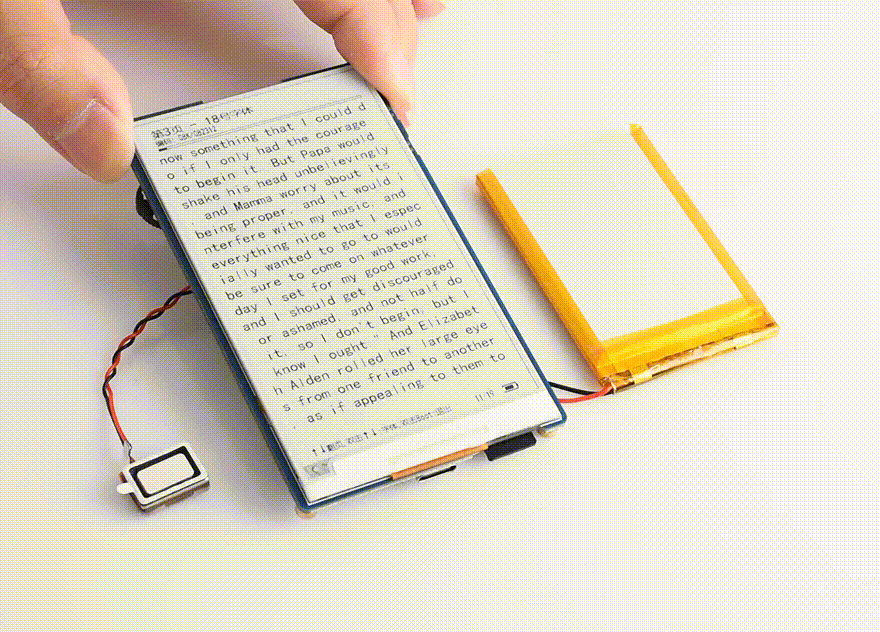 第3页 - 18号字体
编码: GBK/GB2312
now something that I could d
o if I only had the courage
to begin it. But Papa would
shake his head unbelievingly
, and Mamma worry about its
being proper, and it would i
nterfere with my music, and
everything nice that I espec
ially wanted to go to would
be sure to come on whatever
day I set for my good work,
and I should get discouraged
or ashamed, and not half do
it, so I don't begin, but I
know I ought." And Elizabet
h Alden rolled her large eye
s from one friend to another
, as if appealing to them to
11/19